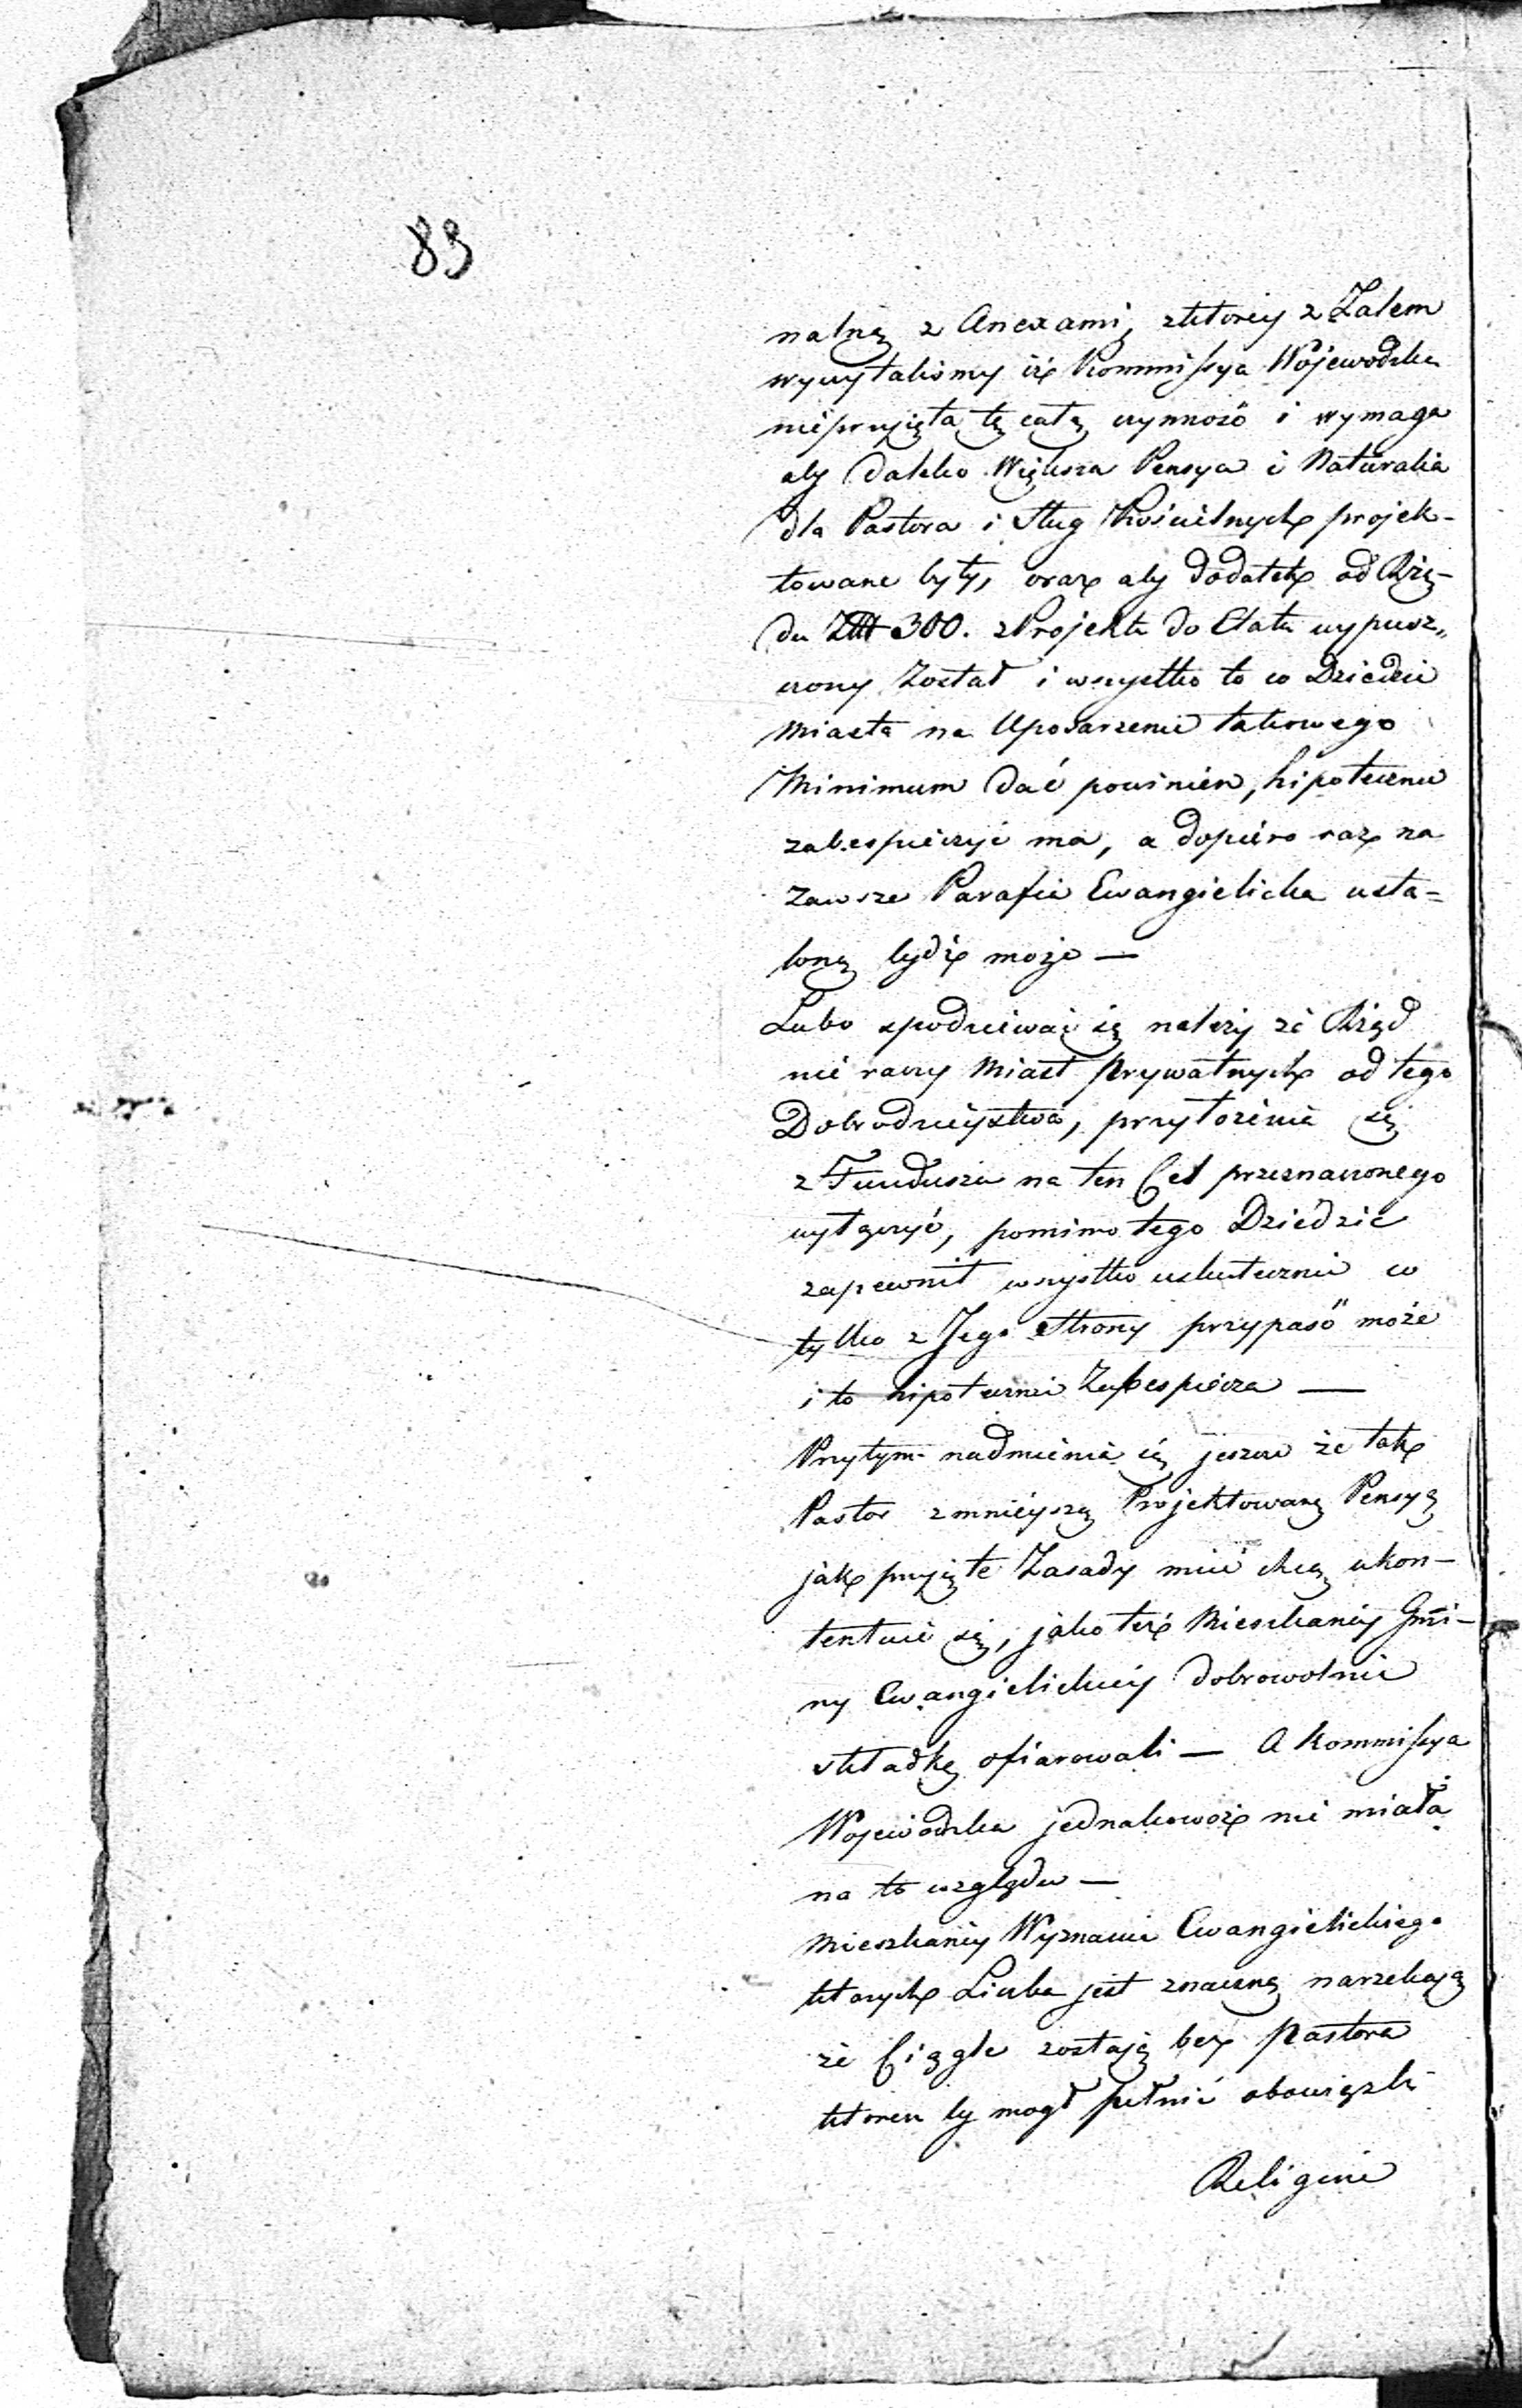 83
nalną z Anexami, z którey z Żalem
wyczytaliśmy iż Kommissya Wojewodzka
nieprzyięła tę całą czynność i wymaga
aby daleko Większa Pensya i Naturalia
dla Pastora i Sług Kościelnych projek-
towane były, oraz aby dodatek od Rzą-
du Złł 300. z Projektu do Etatu wypusz„
czony Został i wszystko to co Dziedzic
Miasta na Uposarzenie takowego
Minimum dać powinien, hipotecznie
zabespieczyć ma, a dopiero raz na
Zawsze Parafia Ewangielicka usta=
loną bydź może —
Lubo spodziewać się należy że Rząd
nie raczy Miast Prywatnych od tego
Dobrodzieystwa, przyłożenia się
z Funduszu na ten Cel przeznaczonego
wyłączyć, pomimo tego Dziedzic
zapewnił wszystko uskutecznić co
tylko z Jego Strony przypaść może
i to hipotecznie Zabespiecza —
Przytym nadmienia się jeszcze że tak
Pastor zmnieyszą Projektowaną Pensyą
jak przyięte Zasady mieć chcą ukon-
tentuie się, jako też Mieszkańcy Gmi-
ny Ewangielickiey dobrowolnie
składkę ofiarowali — A Kommissya
Wojewódzka jednakowoż nie miała
na to względu —
Mieszkańcy Wyznania Ewangielickiego
których Liczba jest znaczną narzekają
że Ciągle zostają bez Pastora
któren by mogł pełnić obowiązki
Religine